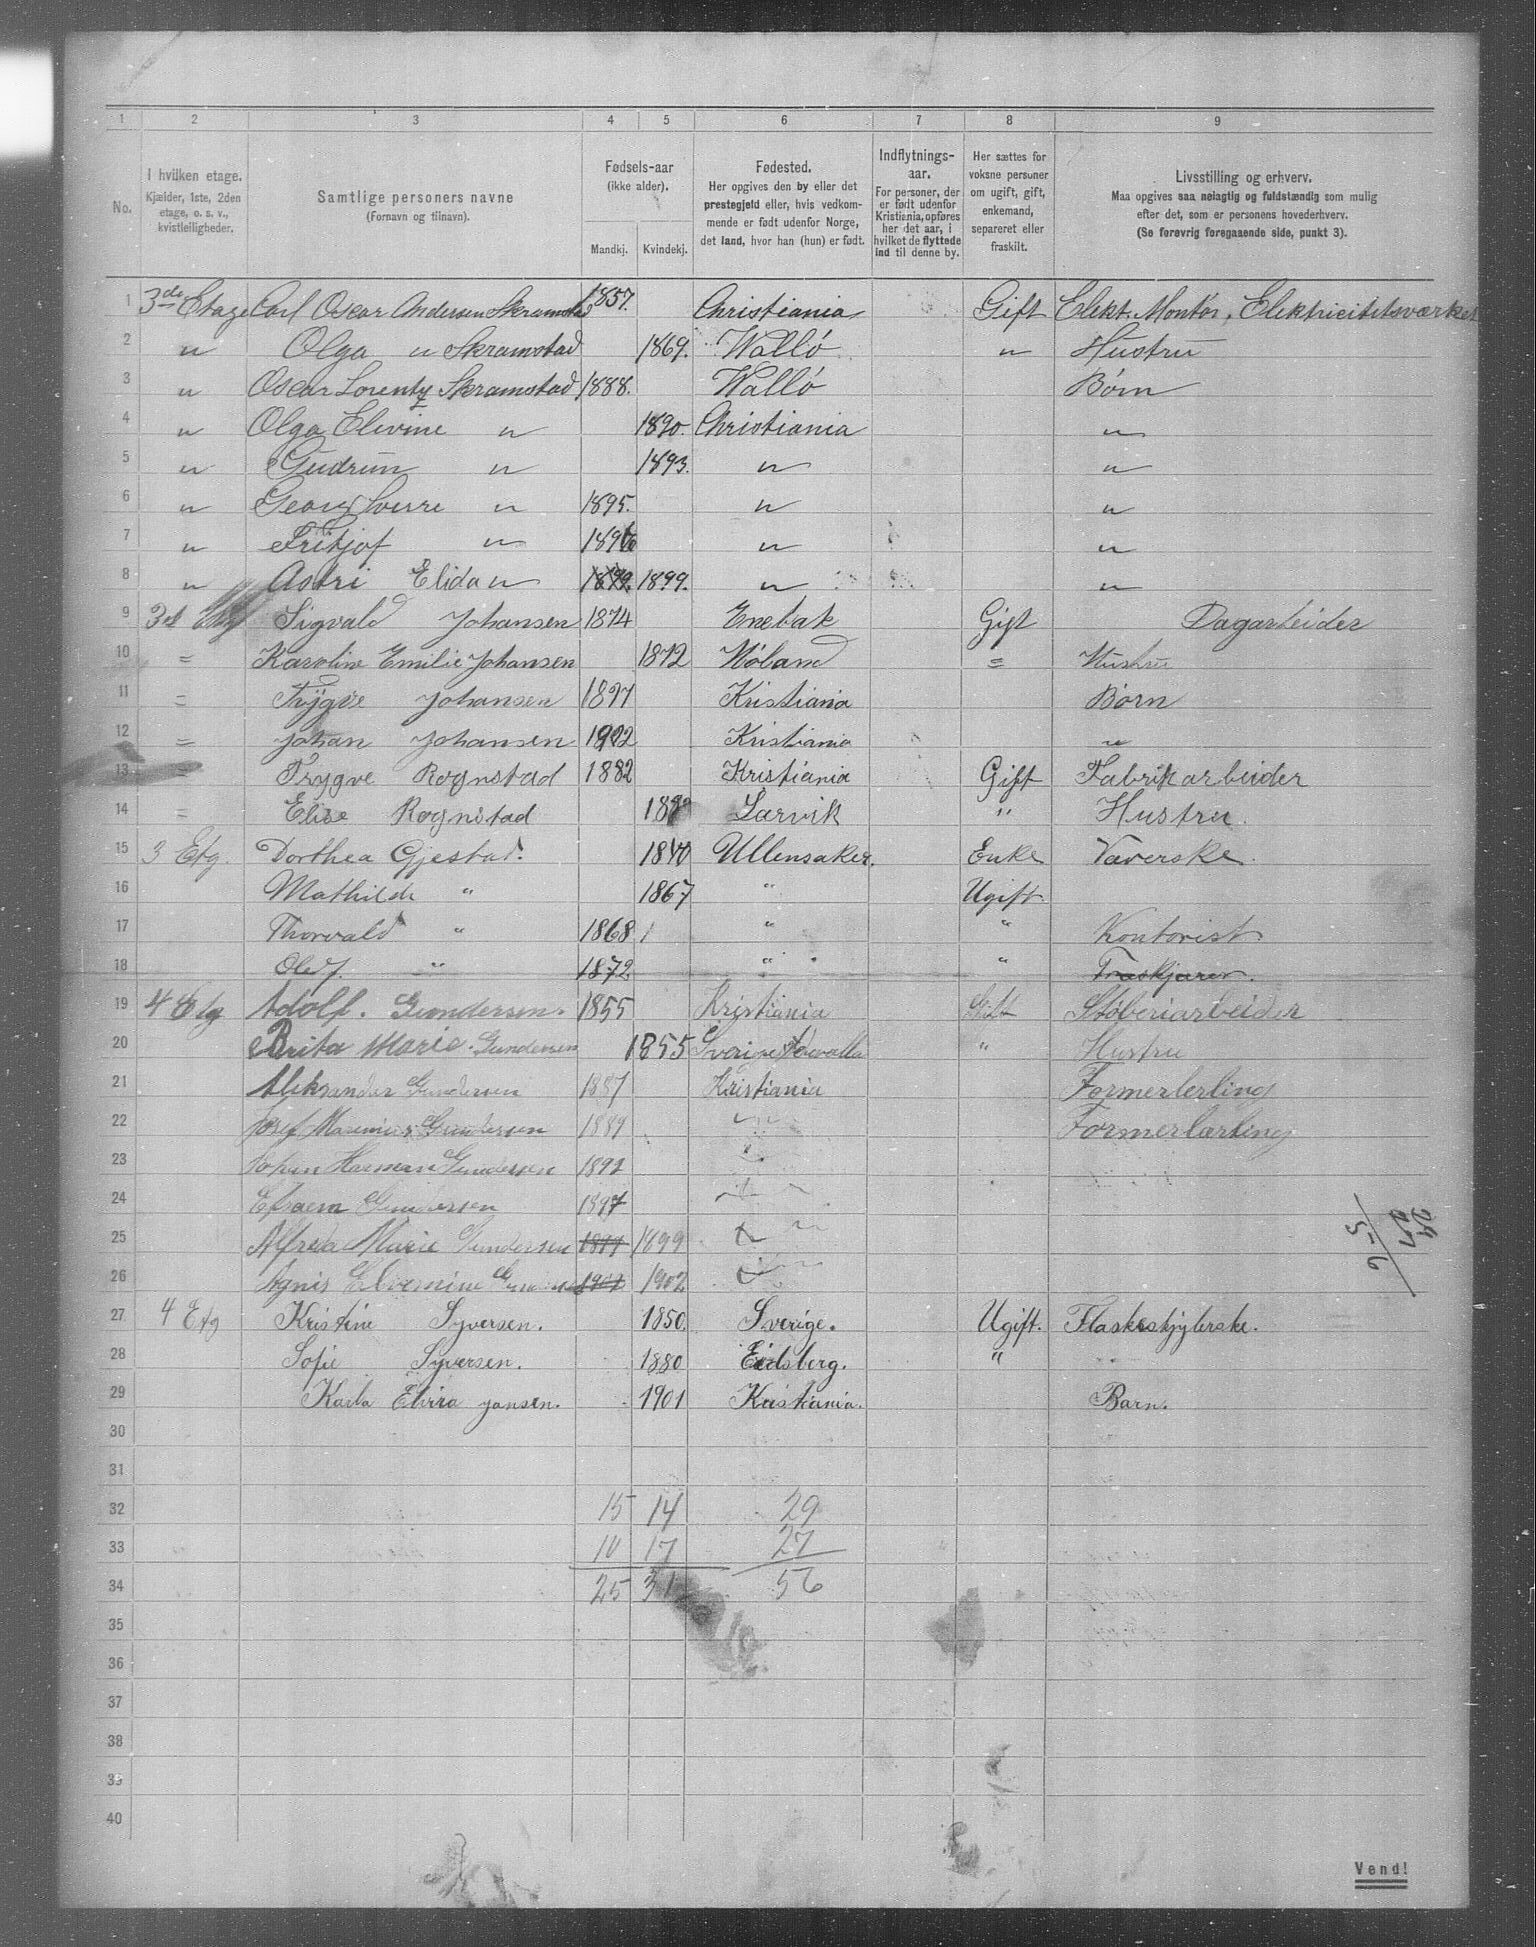 1 2 3 4 5 6 7 8 9
No.
I hvilken etage.
Kjælder, 1ste, 2den
etage, o. s. v.,
kvistleiligheder.
Samtlige personers navne
(Fornavn og tilnavn).
Fødsels-aar
(ikke alder).
Mandkj. Kvindekj.
Fødested.
Her opgives den by eller det
prestegjeld eller, hvis vedkom-
mende er født udenfor Norge,
det land, hvor han (hun) er født.
Indflytnings-
aar.
For personer, der
er født udenfor
Kristiania, opføres
her det aar, i
hvilket de flyttede
ind til denne by.
Her sættes for
voksne personer
om ugift, gift,
enkemand,
separeret eller
fraskilt.
Livsstilling og erhverv.
Maa opgives saa nøiagtig og fuldstændig som mulig
efter det, som er personens hovederhverv.
(Se forøvrig foregaaende side, punkt 3).
1 3de Etage Carl Oscar Andersen Skramstad 1857. Christiania Gift Elekt. Montør, Elektricitetsværket
2 " Olga " Skramstad 1869. Walló " Hustru
3 " Oscar Lorentz Skramstad 1888. Walló Børn
4 " Olga Elevine " 1890. Christiania "
5 " Gudrun " 1893. " "
6 " Georg Sverre " 1895. " "
7 " Fritjof " 1896 " "
8 " Astri Elida " 1899. 1899. " "
9 3d Etg Sigvald Johansen 1874 Enebak Gift Dagarbeider
10 = Karoline Emilie Johansen 1872 Høland = Hustru
11 = Trygve Johansen 1897 Kristiania Børn
12 = Johan Johansen 1902 Kristiania "
13 = Trygve Rognstad 1882 Kristiania Gift Fabrikarbeider
14 = Elise Rognstad Larvik " Hustru.
15 3 Etg. Dorthea Gjestad. 1840 Ullensaker. Enke Væverske.
16 Mathilde " 1867 " Ugift
17 Thorvald " 1868 " " Kontorist
18 Olaf. " 1872 " "
19 4 Etg Adolf. Gundersen. 1855 Kristiania Gift Støberiarbeider
20 Brita Marie. Gundersen 1855 Sverige " Hustru
21 Aleksander Gundersen 1887 Kristiania Formerlerling
22 Josef Gundersen 1889 " Formerlærling
23 Johan Herman Gundersen 1892 "
24 Efraem Gundersen 1897 "
25 Alfreda Marie Gundersen 1899 1899 "
26 Agnis Gundersen 1902 1902 "
27 4 Etg Kristine Syversen. 1850. Sverige. Ugift. Flaskeskylerske.
28 Sofie Syversen. 1880 Eidsberg. "
29 Karla Elvira Jansen. 1901 Kristiania. Barn.
30
31
32 15 14 29
33 10 17 27
34 25 31 56
35
36
37
38
39
40
29
27
56
Vend!